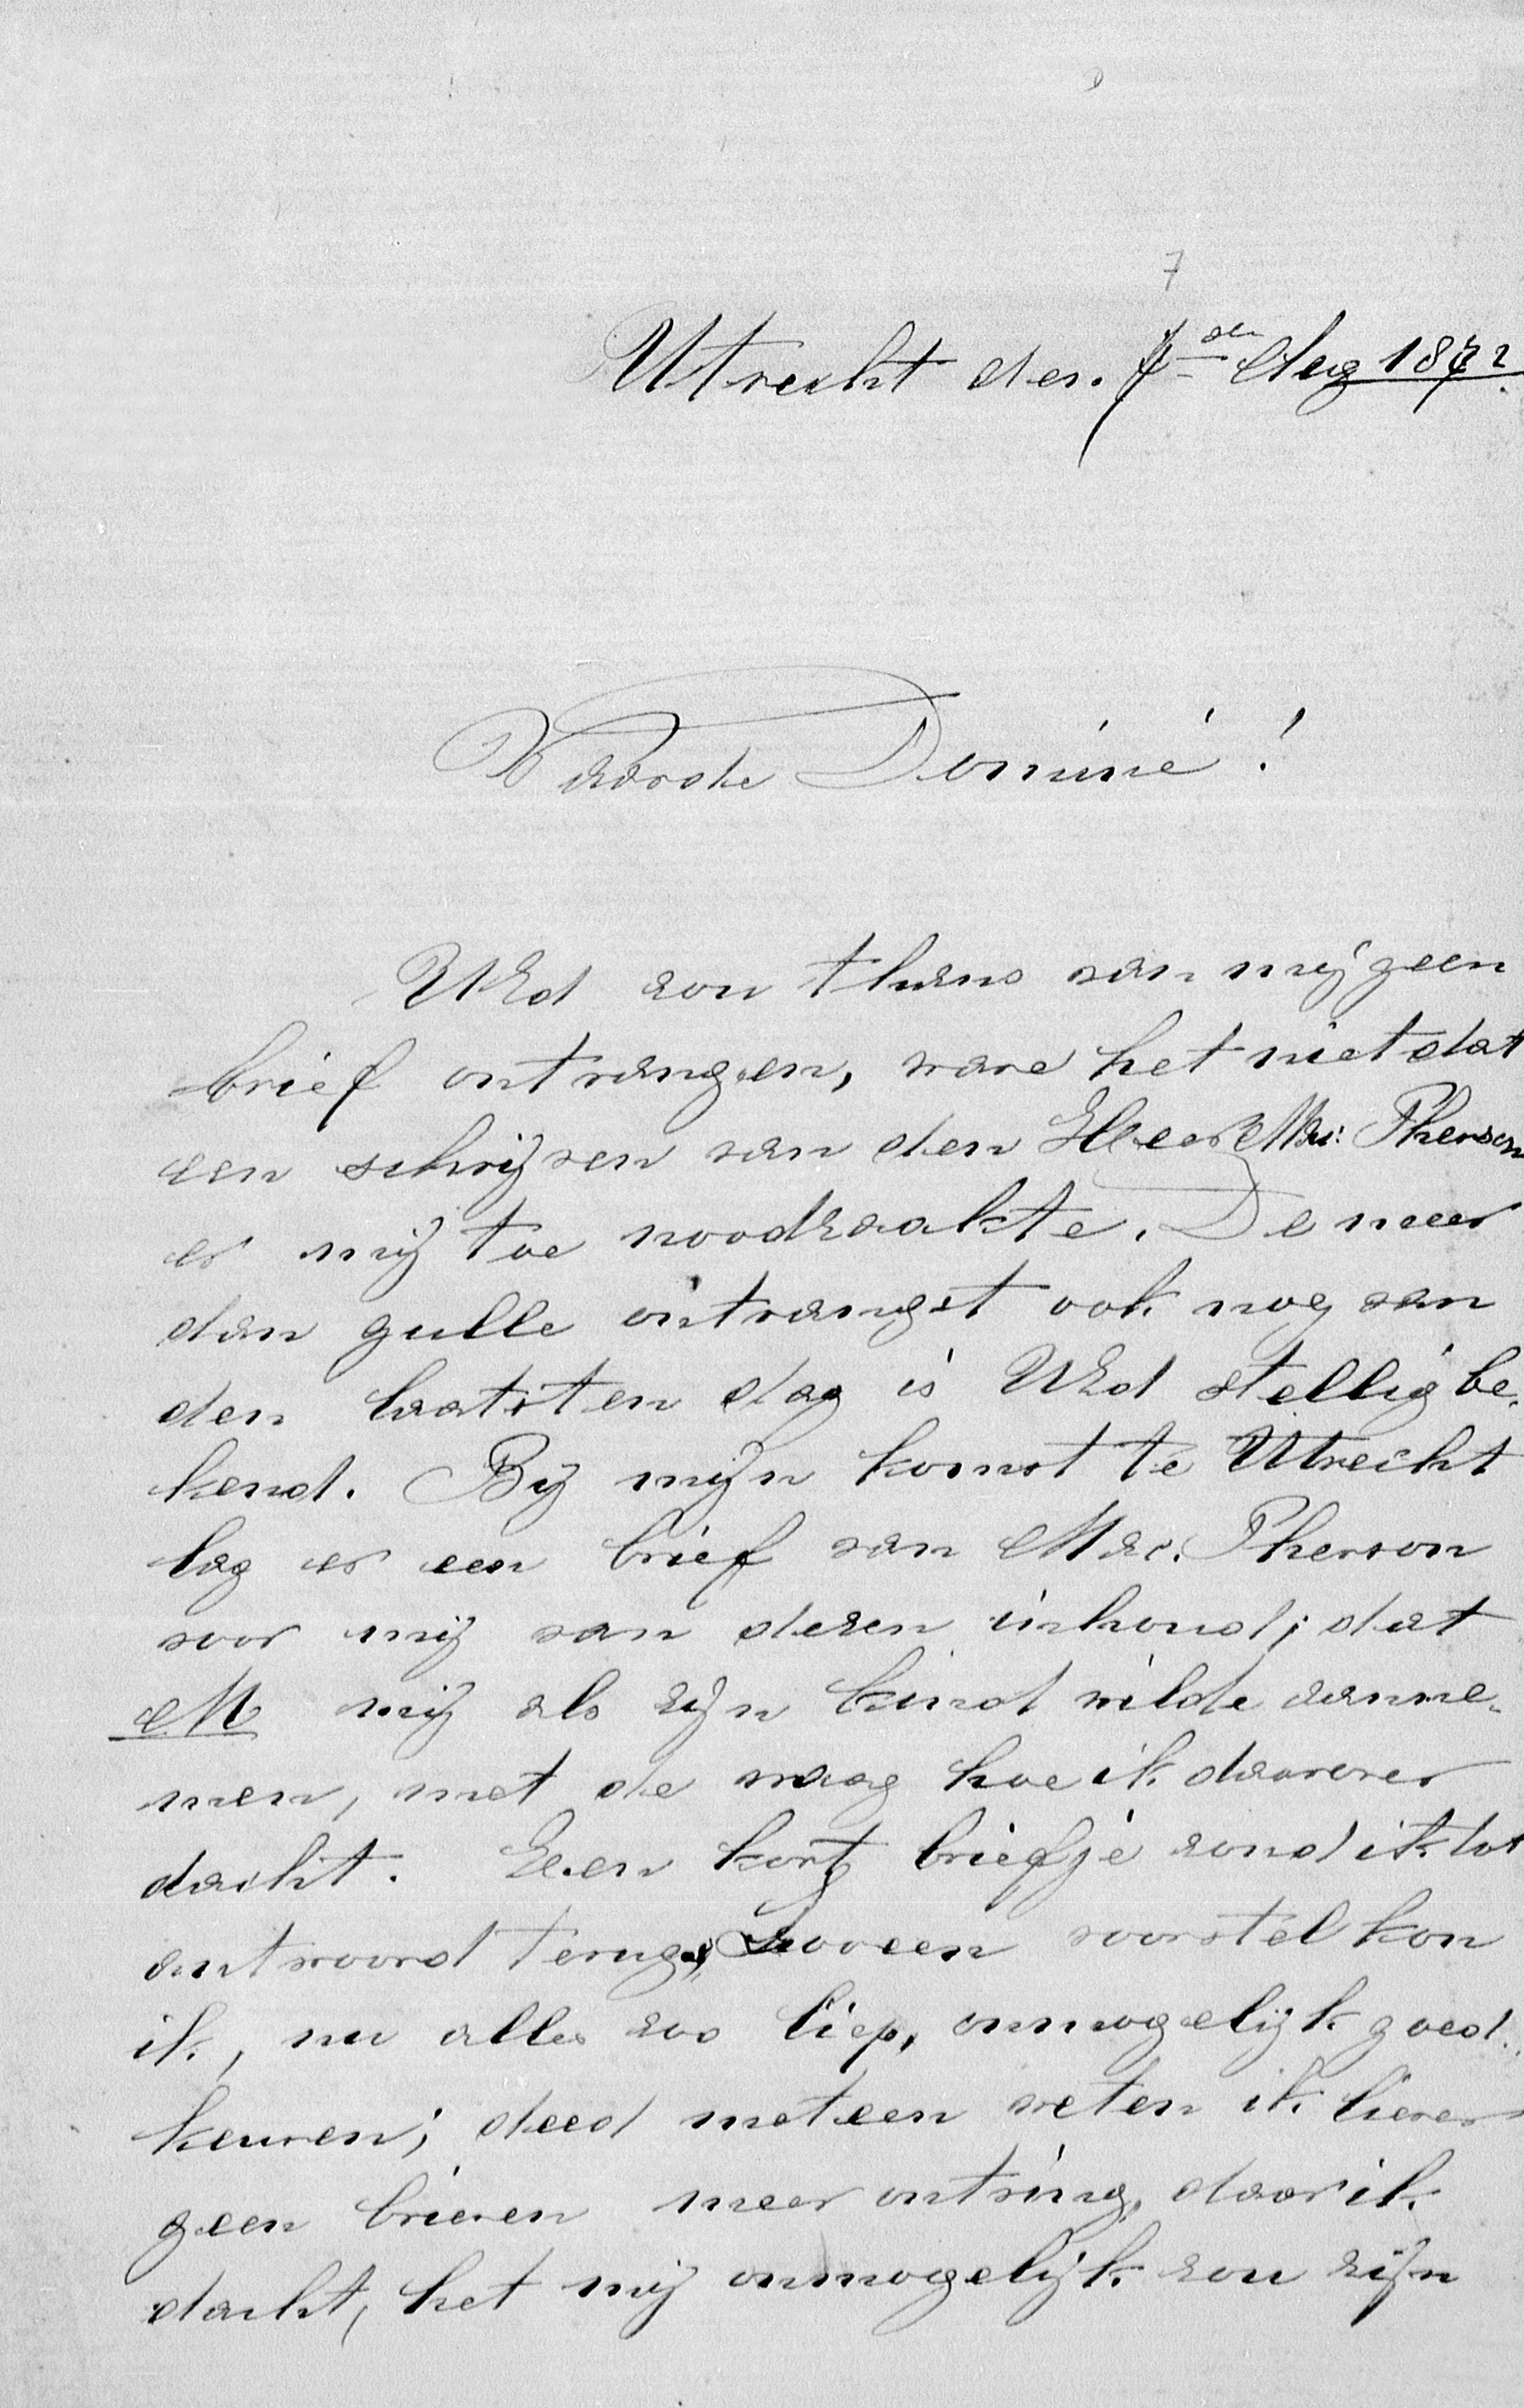 7
Utrecht den 7den Aug 1872
Waarde Dominé!
UEd zou thans van mij geen
brief ontvangen, ware het niet dat
een schrijven van den Heer Mac: Pherson
er mij toe noodzaakte. De meer
dan gulle ontvangst ook nog van
den laatsten dag is UEd stellig be-
kend. Bij mijn komst te Utrecht
lag er een brief van Mac. Pherson
voor mij van dezen inhoud; dat
M mij als zijn kind wilde aanne-
men, met de vraag hoe ik daarover
dacht. Een kort briefje zond ik tot
antwoord terug, Zoo een voorstel kon
ik, nu alles zoo liep, onmogelijk goed-
keuren; deed meteen weten ik liever
geen brieven meer ontving, daar ik
dacht, het mij onmogelijk zou zijn